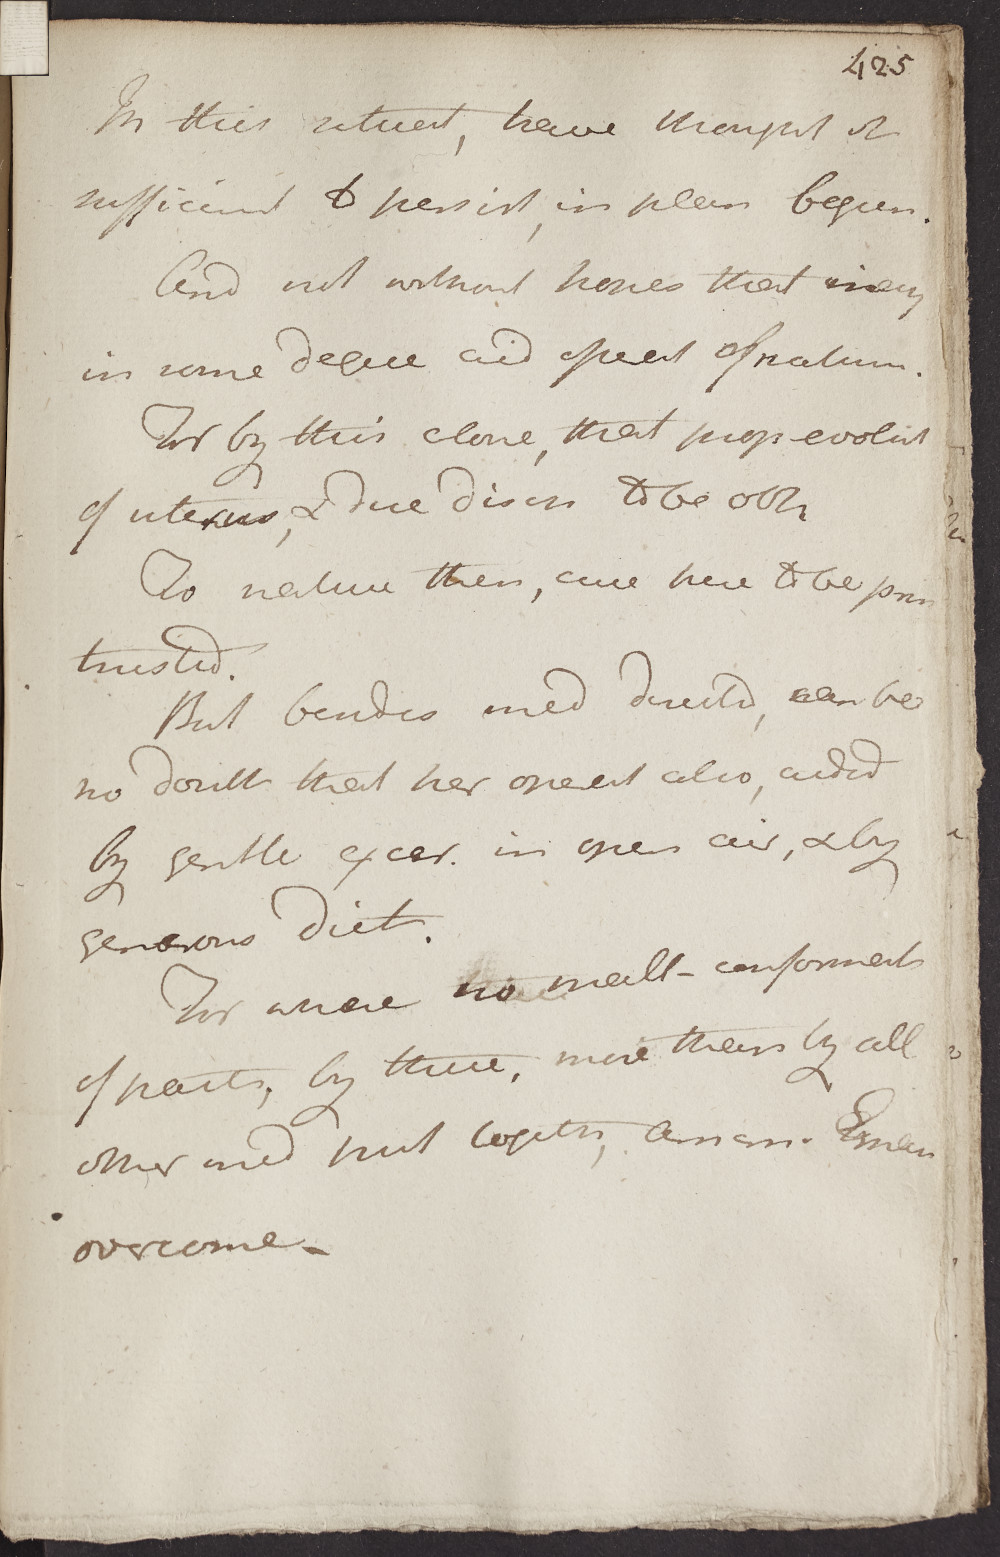 425
In this situat, have thought it
sufficient to persist, in plan begun.
And not without hopes that may
in some degree aid operat of nature.
For by this alone, that prop evolut
of uterus, & due disch to be obt
To nature then, cure here to be
trusted.
But besides med directd, can be
no doubt that her operat also, aided
by gentle exer. in open air, & by
generous diet.
For where no mall-conformat
of parts, by these, more than by all
other med put togethr, Amen.
overcome.